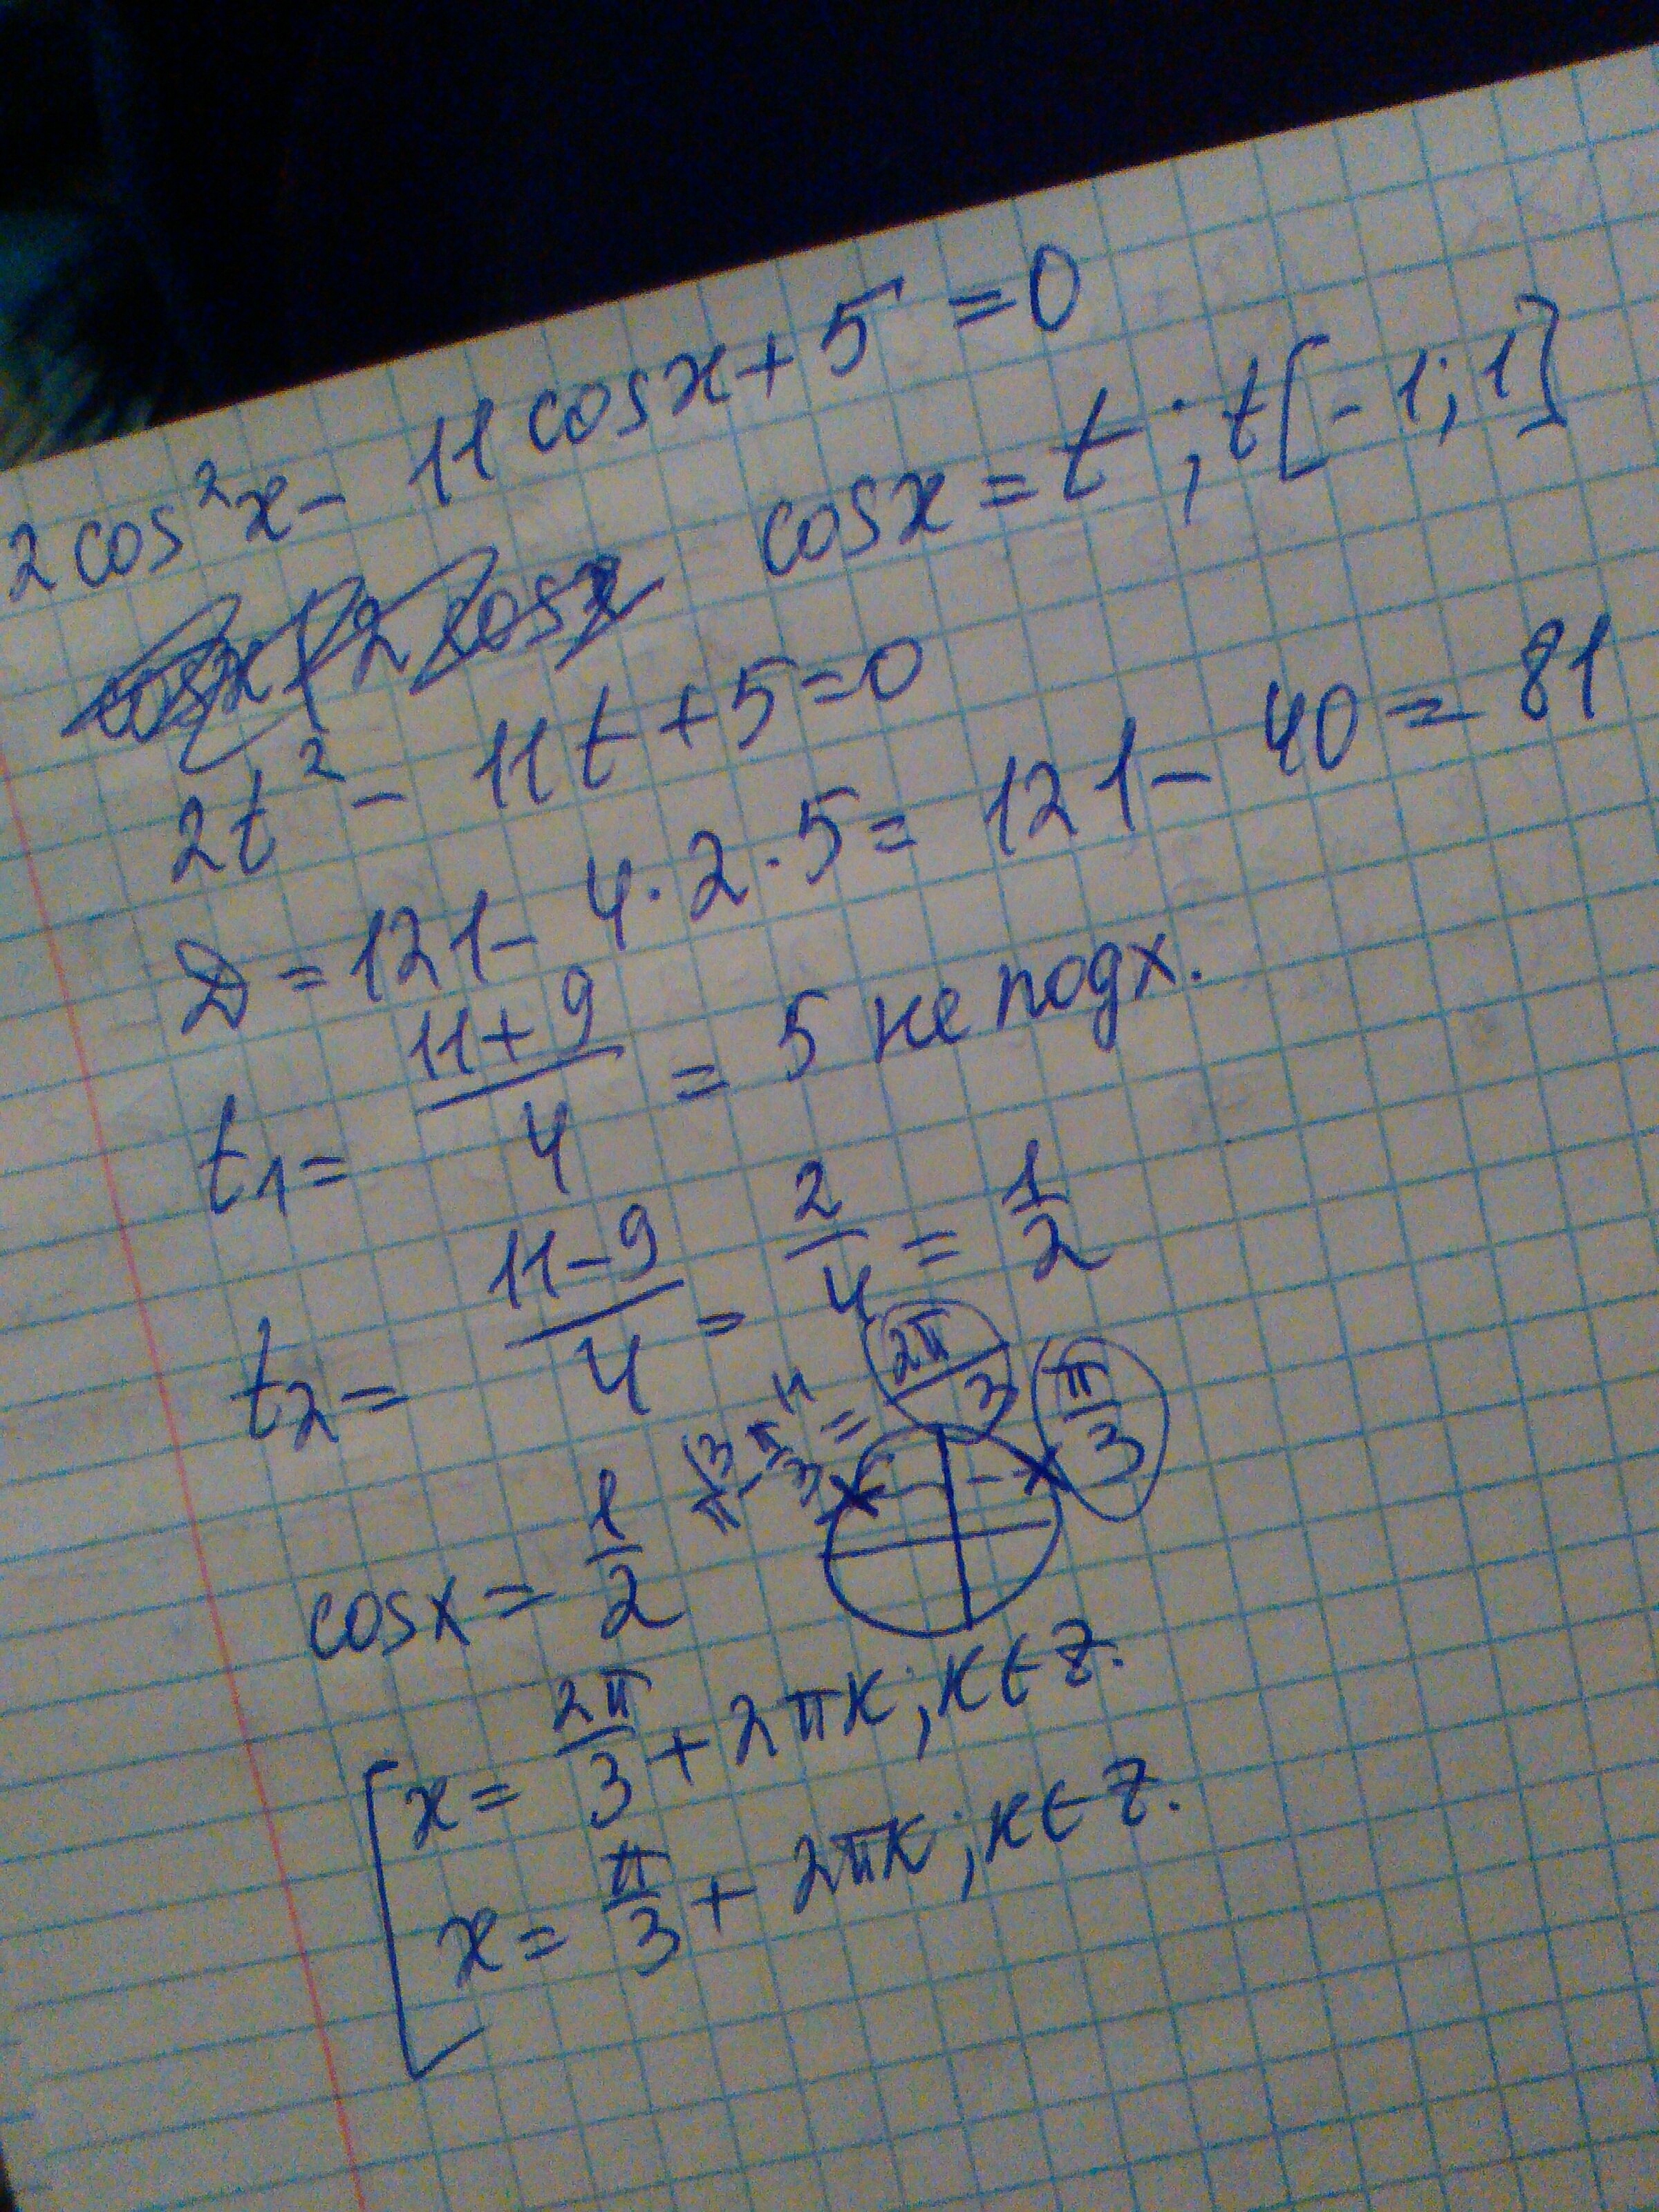 2cos²x - 11cosx + 5 = 0
cosx(2cosx cosx = t ; t[-1;1]
2t² - 11t + 5 = 0
D = 121 - 4·2·5 = 121 - 40 = 81
t₁ = (11+9)/4 = 5 не подх.
t₂ = (11-9)/4 = 2/4 = 1/2
π - π/3 = 2π/3 π/3
cosx = 1/2
x = 2π/3 + 2πk; k∈Z.
x = π/3 + 2πk; k∈Z.